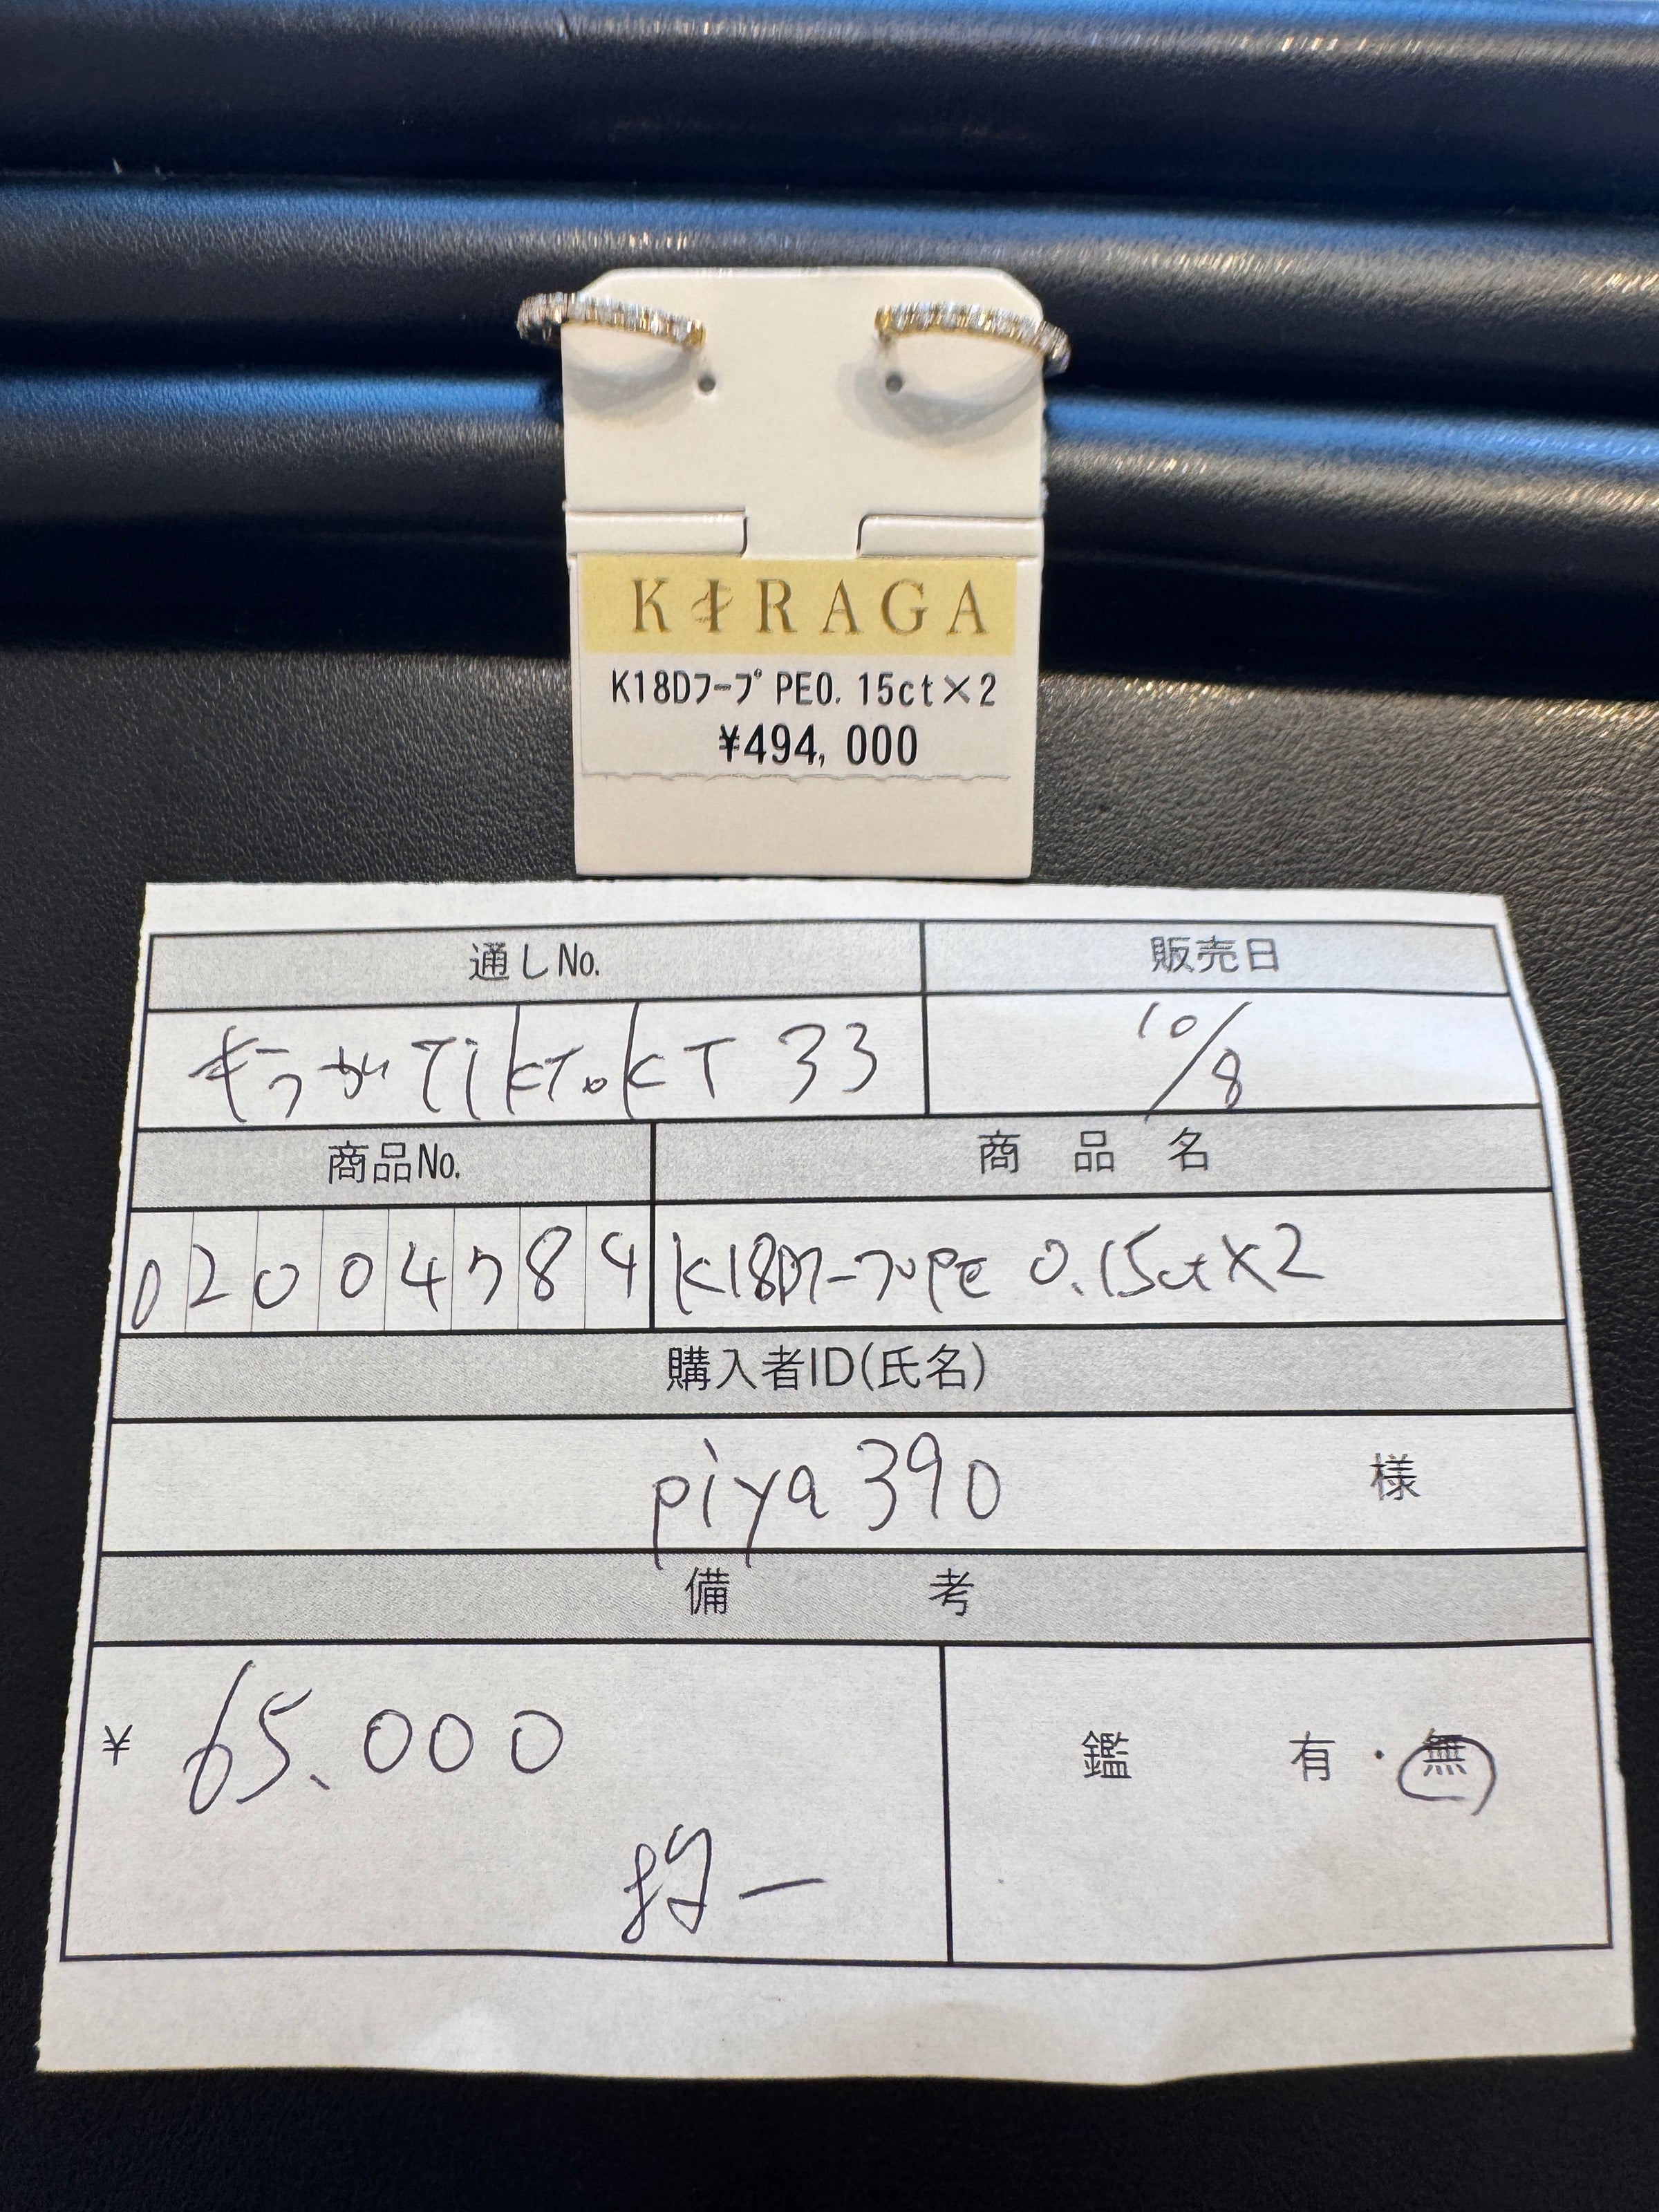 KIRAGA
K18Dﾌｰﾌﾟ PE0. 15ct×2
¥494, 000
通しNo. 販売日
キラガTikTokKT 33 10/8
商品No. 商品名
02004784 K18Dフープ PE 0.15ct×2
購入者ID(氏名)
piya390 様
備考
¥ 65.000 鑑 有・無